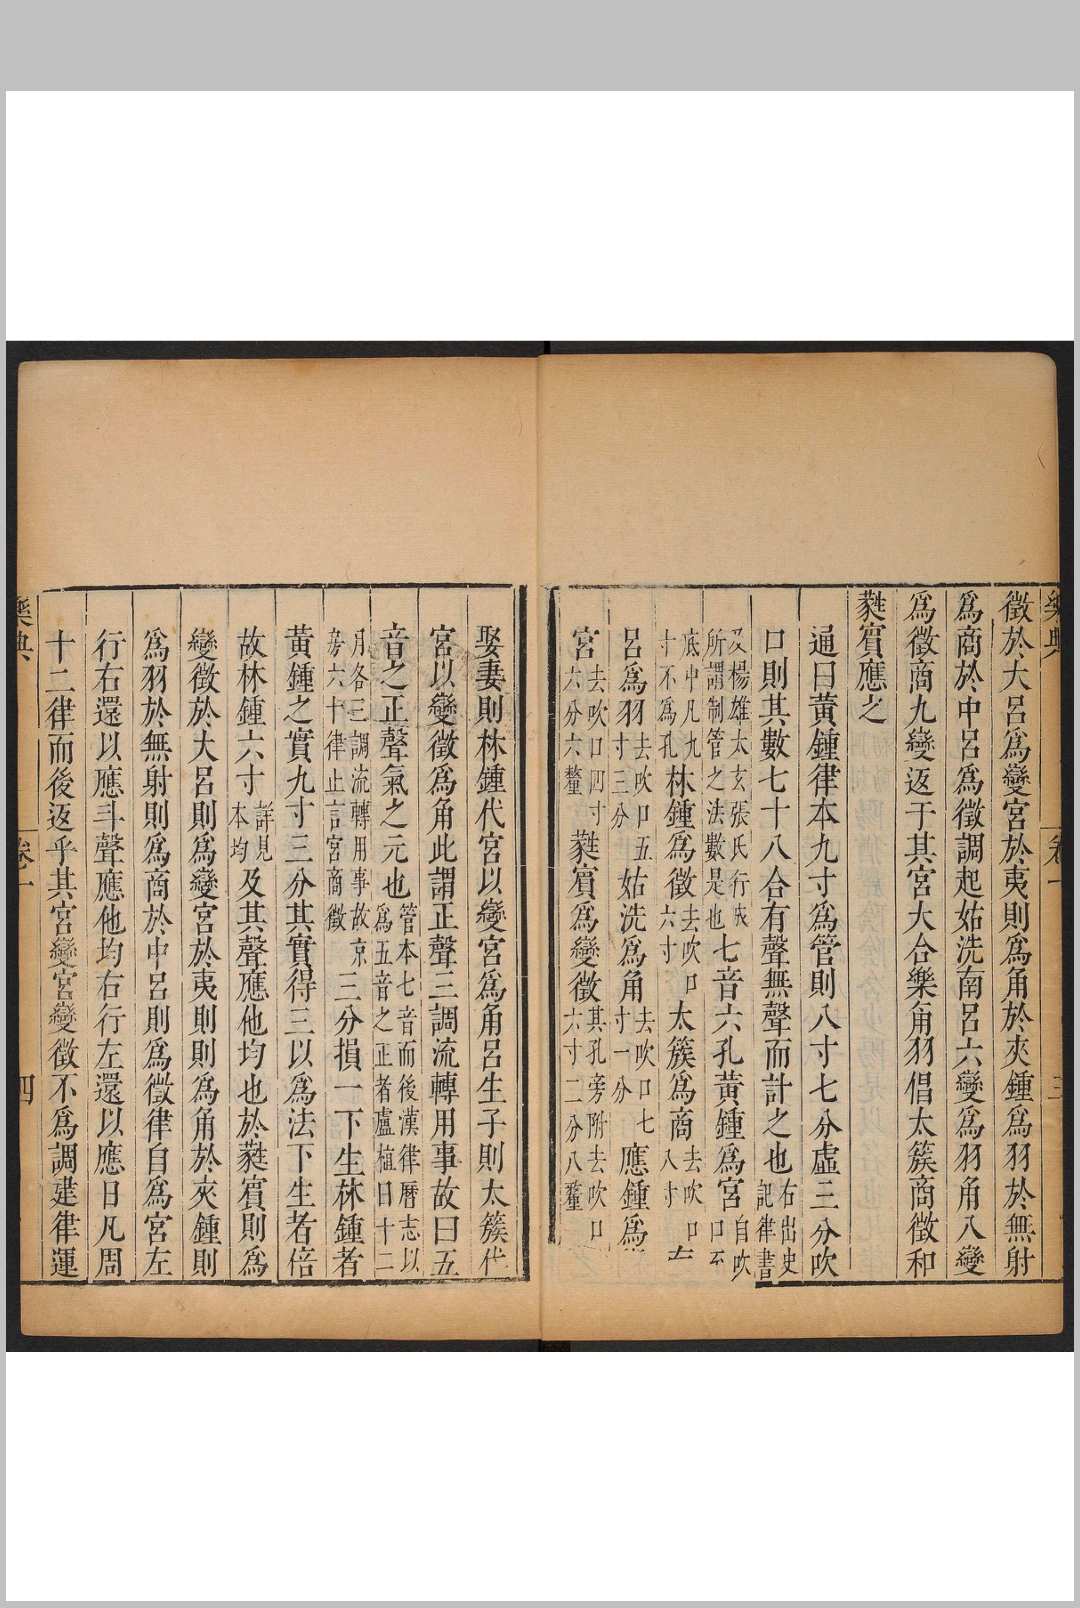 樂典 卷一 三
徵於大呂爲變宮於夷則爲角於夾鍾爲羽於無射
爲商於中呂爲徵調起姑洗南呂六變爲羽角八變
爲徵商九變返于其宮大合樂角羽倡太簇商徵和
蕤賓應之
通曰黃鍾律本九寸爲管則八寸七分虛三分吹
口則其數七十八合有聲無聲而計之也右出史記律書
及楊雄太玄張氏行成所謂制管之法數是也七音六孔黃鍾爲宮自吹口至
底中凡九寸不爲孔林鍾爲徵去吹口六寸太簇爲商去吹口八寸
呂爲羽去吹口五寸三分姑洗爲角去吹口七寸一分應鍾爲
宮去吹口四寸六分六釐蕤賓爲變徵其孔旁附去吹口六寸二分八釐
娶妻則林鍾代宮以變宮爲角呂生子則太簇代
宮以變徵爲角此謂正聲三調流轉用事故曰五
音之正聲氣之元也管本七音而後漢律曆志以爲五音之正者盧植曰十二
月各三調流轉用事故京房六十律止言宮商徵三分損一下生林鍾者
黃鍾之實九寸三分其實得三以爲法下生者倍
故林鍾六寸詳見本均及其聲應他均也於蕤賓則爲
變徵於大呂則爲變宮於夷則則爲角於夾鍾則
爲羽於無射則爲商於中呂則爲徵律自爲宮左
行右還以應斗聲應他均右行左還以應日凡周
十二律而後返乎其宮變宮變徵不爲調建律運
樂典 卷一 四